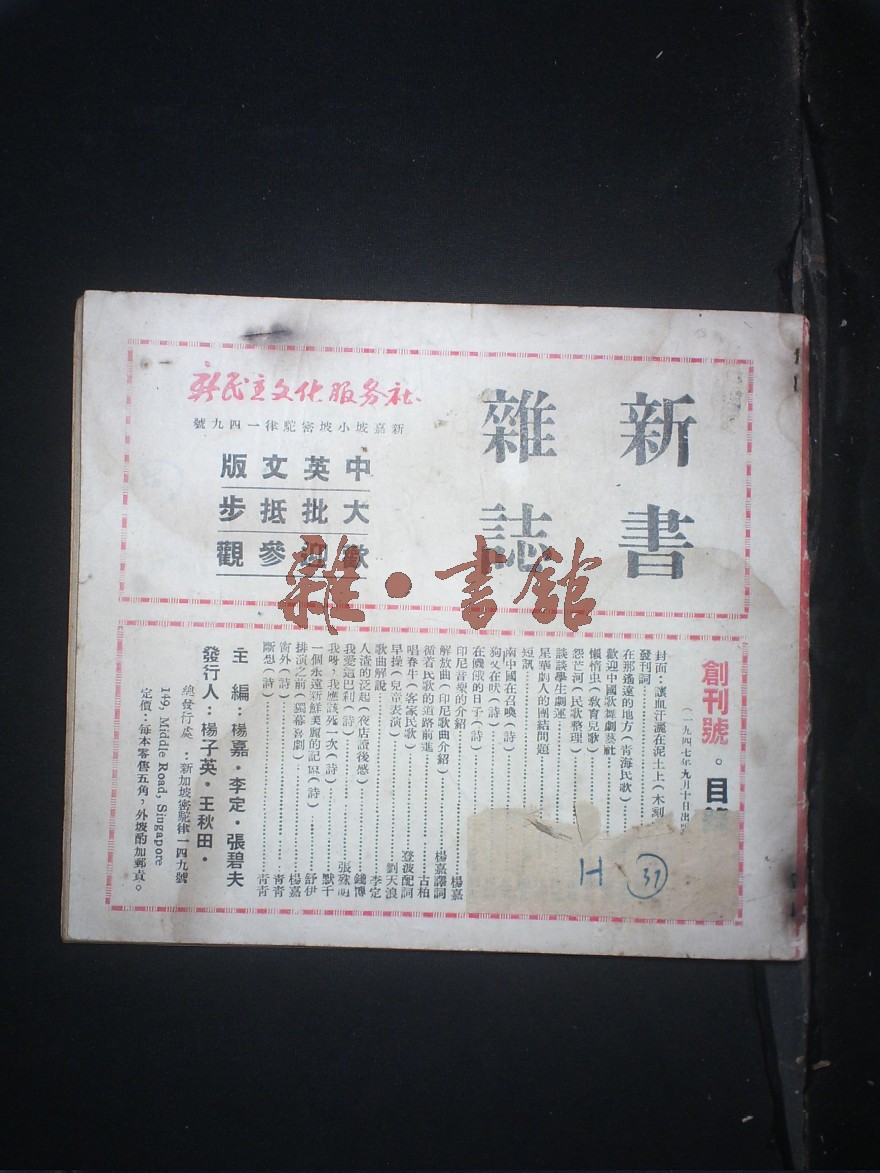 新書
雜誌
新民主文化服务社
新嘉坡小坡密駝律一四九號
中英文版
大批抵步
歡迎參觀
雜·書館
創刊號。目
（一九四七年九月十日出
封面：讓血汗灑在泥土上（木刻
發刊詞
在那遙遠的地方（青海民歌）
歡迎中國歌舞劇藝社
懶惰虫（敎育兒歌）
怨芒河（民歌整理）
談談學生劇運
星華劇人的團結問題
短訊
南中國在召喚（詩）
狗又在吠（詩）
在饑餓的日子（詩）
印尼音樂的介紹 楊嘉
解放曲（印尼歌曲介紹） 楊嘉譯詞
循着民歌的道路前進 古柏
唱春牛（客家民歌） 登波配詞
早操（兒童表演） 劉天浪
歌曲解說 李定
人渣的泛起（夜店讀後感） 錢博
我愛這巴刹（詩） 張殊明
我呀，我應該死一次（詩） 默千
一個永遠新鮮美麗的記憶（詩） 舒伊
排演之前（獨幕喜劇） 楊嘉
窗外（詩） 青青
斷想（詩） 青青
主編：楊嘉·李定·張碧夫
發行人：楊子英·王秋田·
總發行處：新加坡密駝律一四九號
149, Middle Road, Singapore
定價：每本零售五角，外坡酌加郵資。
H 37